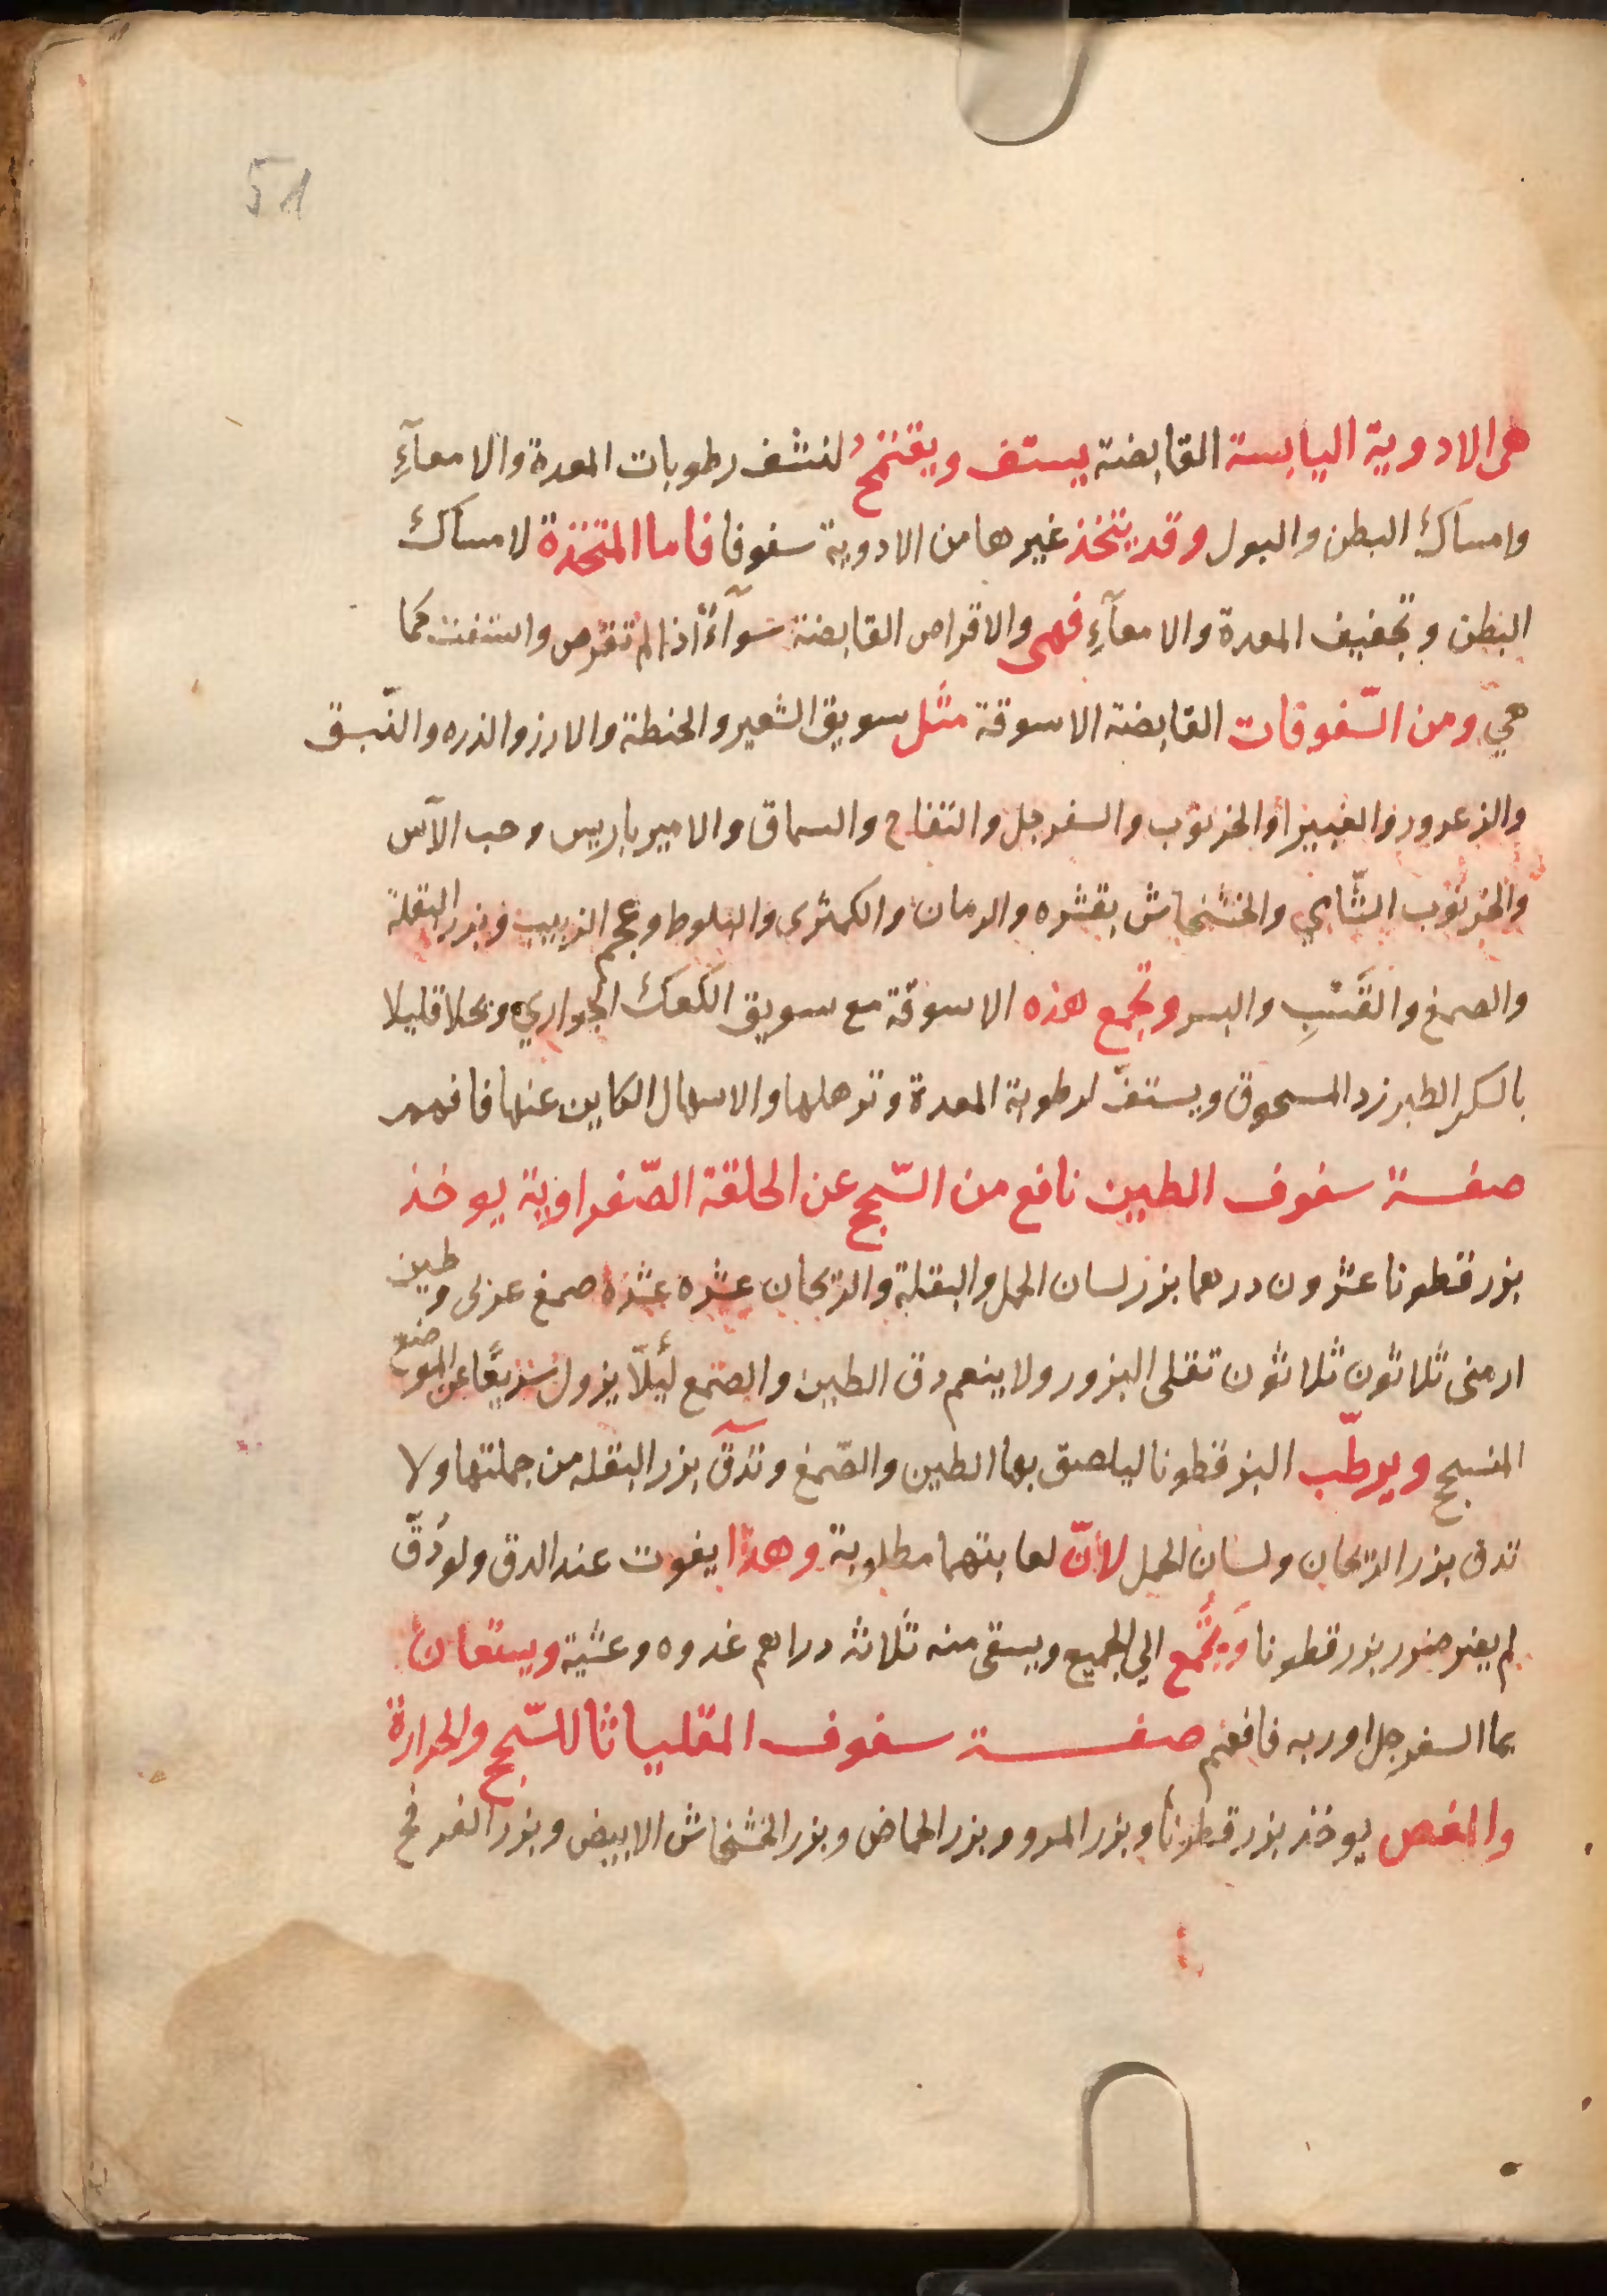 51
هى الادوية اليابسة القابضة يستف ويقتمح لنشف رطوبات المعدة والامعآءِ
وامساك البطن والبول وقد يتخذ غيرها من الادوية سفوفا فاما المتخذة لامساك
البطن وتجفيف المعدة والامعآءِ فهى والاقراص القابضة سوآءً اذا لم تقرص واستفت كما
هيّ ومن السّفوفات القابضة الاسوقة مثل سويق الشعير والحنطة والارز والذره والنّبق
والزعرور والغبيرا والخرنوب والسفرجل والتفاح والسماق والاميرباريس وحب الآس
والخرنوب الشّامي والخشخاش بقشره والرمان والكمثرى والبلوط وعجم الزبيب وبزر البقلة
والصمغ والقَسْبِ والبسر وتجمع هذه الاسوقة مع سويق الكعك الحوارى وتحلا قليلا
بالسكر الطبرزد المسحوق ويستفّ لرطوبة المعدة وترهلها والاسهال الكاين عنها فافهم
صفة سفوف الطين نافع من السّحج عن الحلقة الصّفراوية يوخذ
بزر قطونا عشرون درهما بزر لسان الحمل والبقلة والريحان عشره عشره صمغ عربى وطين
ارمنى ثلاثون ثلاثون تقلى البزور ولا ينعم دق الطين والصّمغ ليًلّا يزول سريعًا عن الموضع
المنسحج ويرطّب البزرقطونا ليلصق بها الطين والصّمغ وتدقّ بزر البقله من جملتها ولا
تدق بزر الريحان ولسان الحمل لأنّ لعابتهما مطلوبة وهذا يفوت عند الدق ولو دُقّ
لم يضر بزرقطونا وَيُجْمع الي الجميع ويسقى منه ثلاثه دراهم غدوه وعشية ويستعان
بما السفرجل او ربه فافهم صفة سفوف المقلياثا للسّحج والحرارة
والمغص يوخذ بزر قطونا وبزر المرو وبزر الحماض وبزر الخشخاش الابيض وبزر الفرفخ